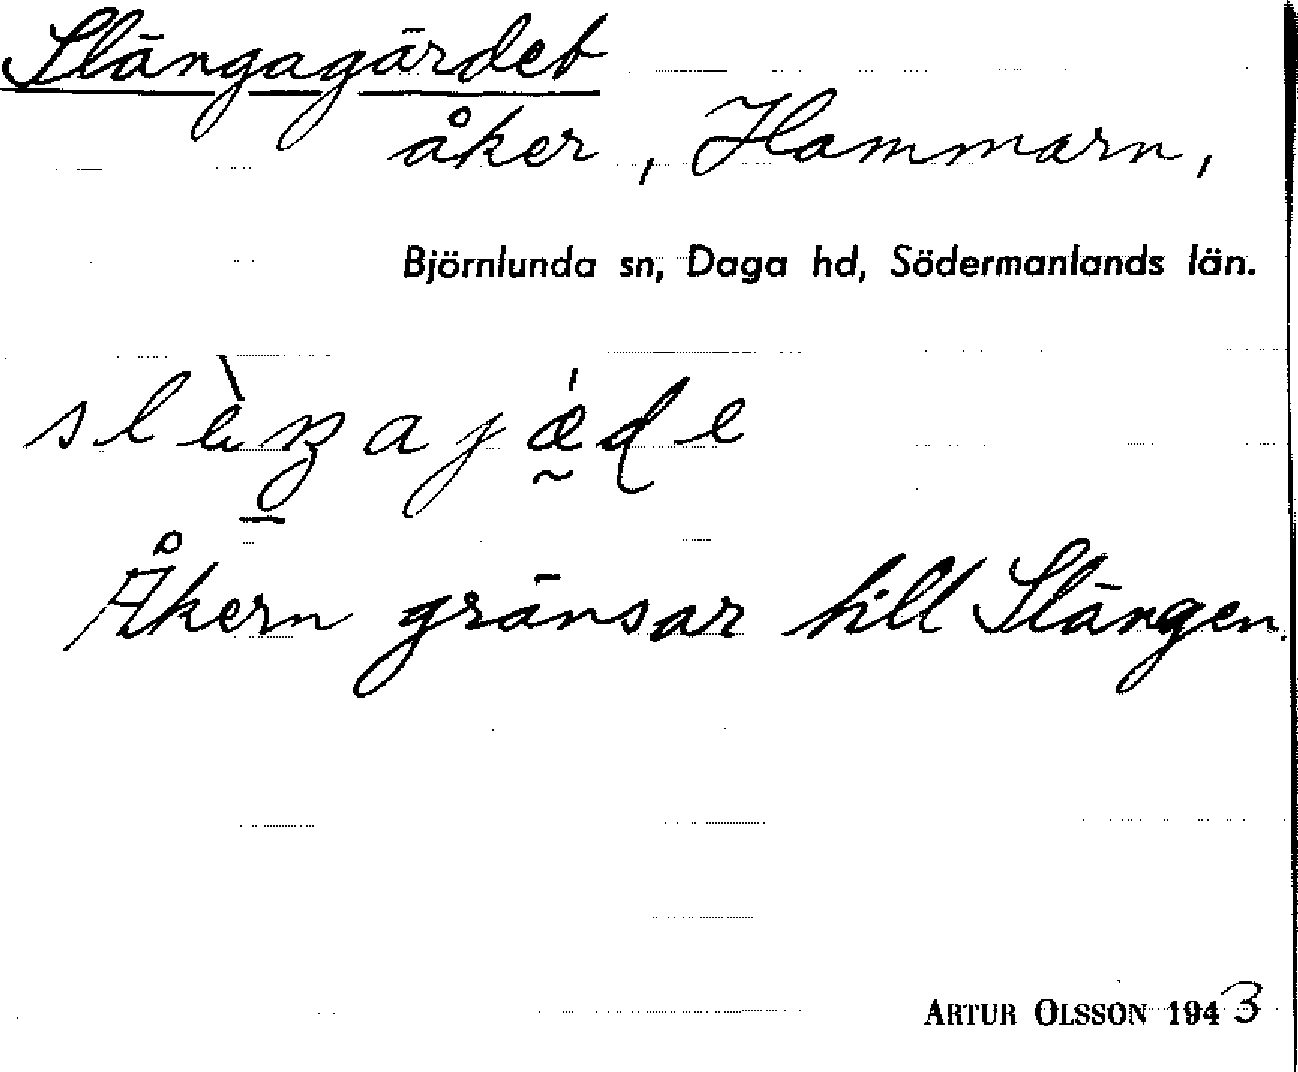 Slängagärdet
åker, Hammarn,
Björnlunda sn, Daga hd, Södermanlands län.
Åkern gränsar till Slängen.
ARTUR OLSSON 1943